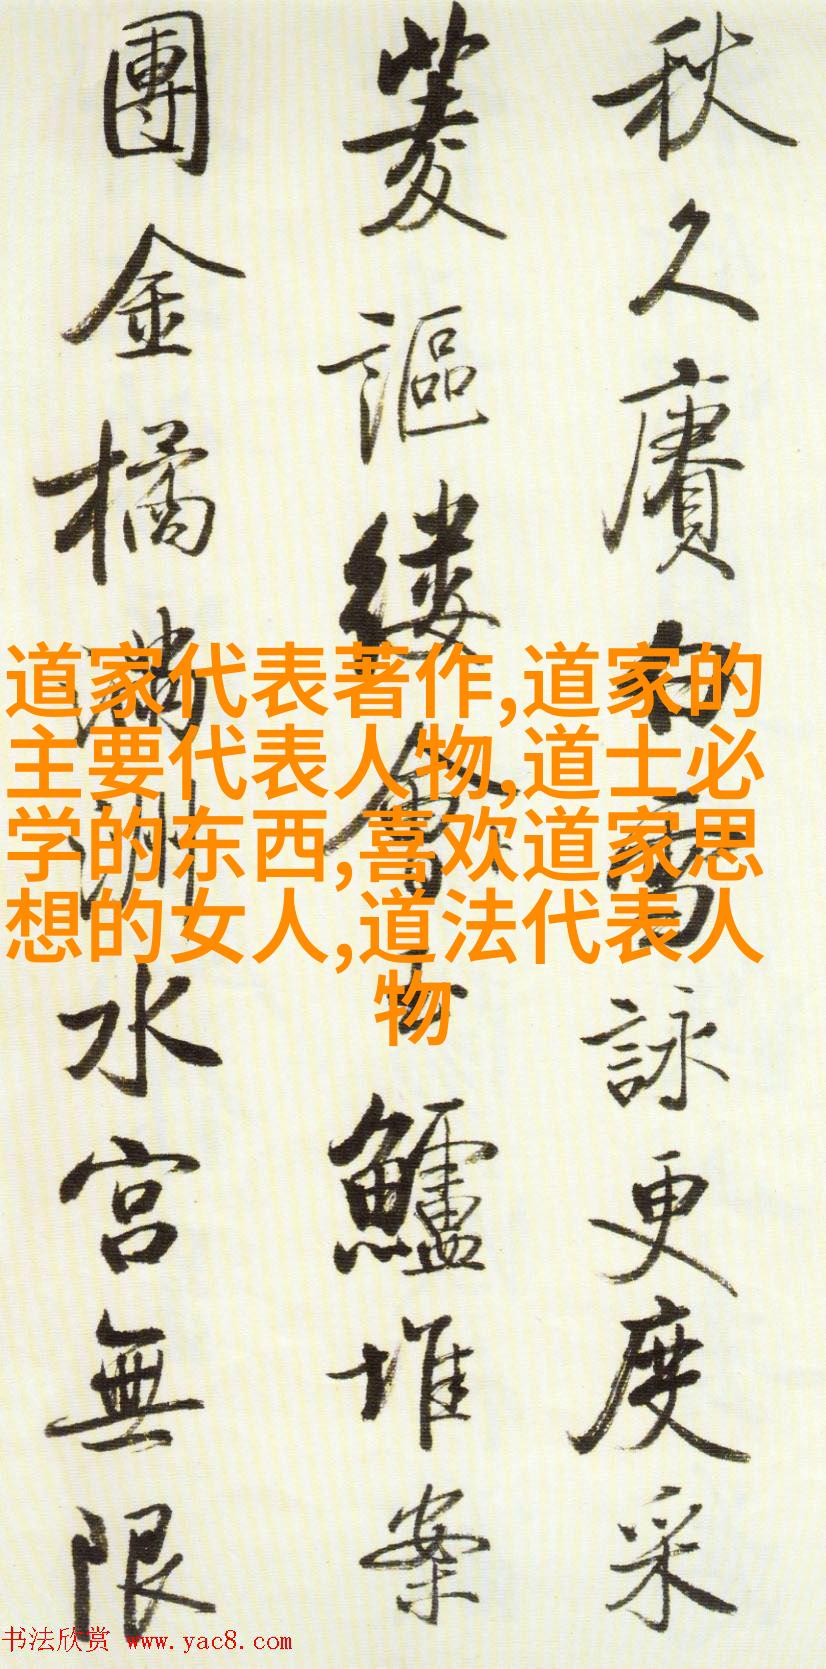 秋久賡白雪詠更度采
菱謳縷會玉鱸堆案
團金橘滿洲水宮無限
道家代表著作,道家的
主要代表人物,道士必
学的东西,喜欢道家思
想的女人,道法代表人
物
书法欣赏 www.yac8.com